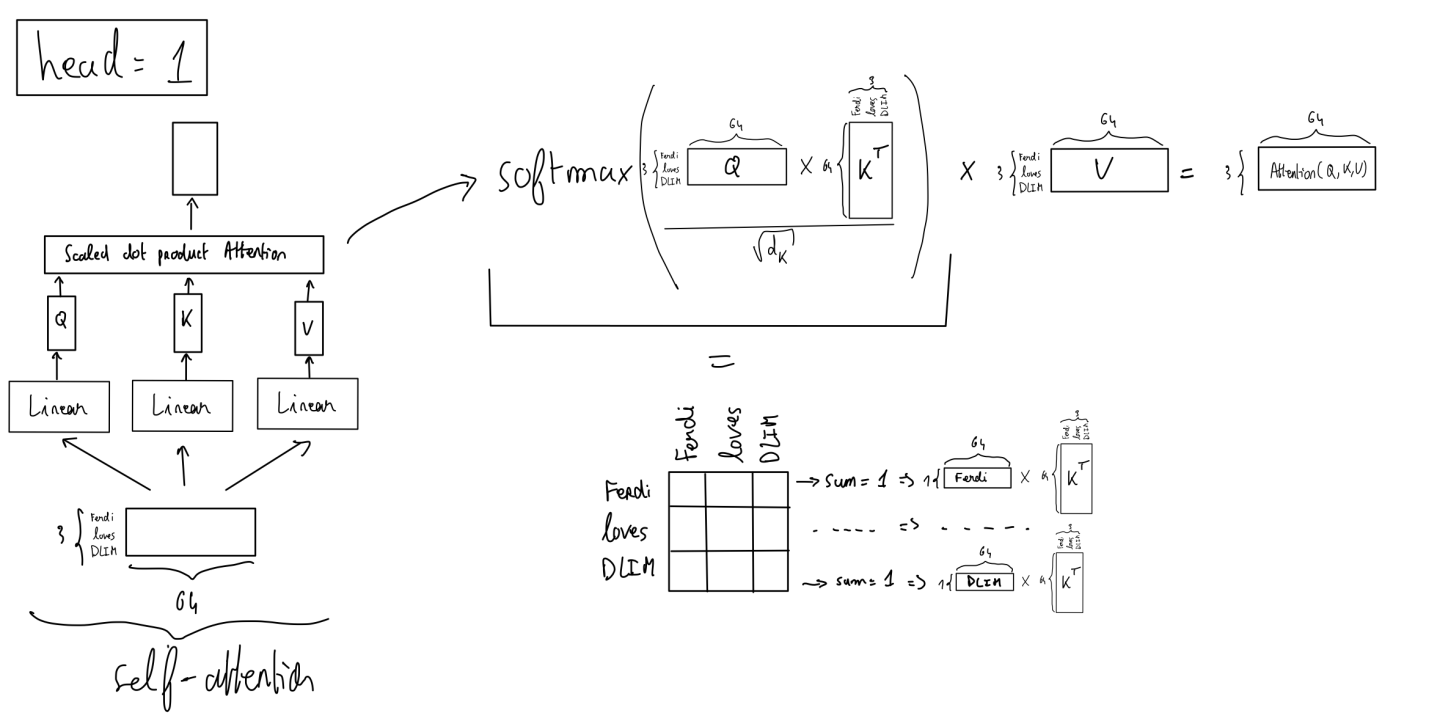 head = 1
Scaled dot product Attention
Q K V
Linear Linear Linear
3 { Ferdi
loves
DLIM
64
self-attention
softmax
3 { Ferdi
loves
DLIM
64
Q
×
64 {
3
Ferdi
loves
DLIM
K^T
√d_K
×
3 { Ferdi
loves
DLIM
64
V
=
3 {
64
Attention(Q,K,V)
=
Ferdi loves DLIM
Ferdi → sum = 1 => 1{ 64 Ferdi × 64 { K^T
3
Ferdi
loves
DLIM
loves ..... => .....
DLIM → sum = 1 => 1{ 64 DLIM × 64 { K^T
3
Ferdi
loves
DLIM